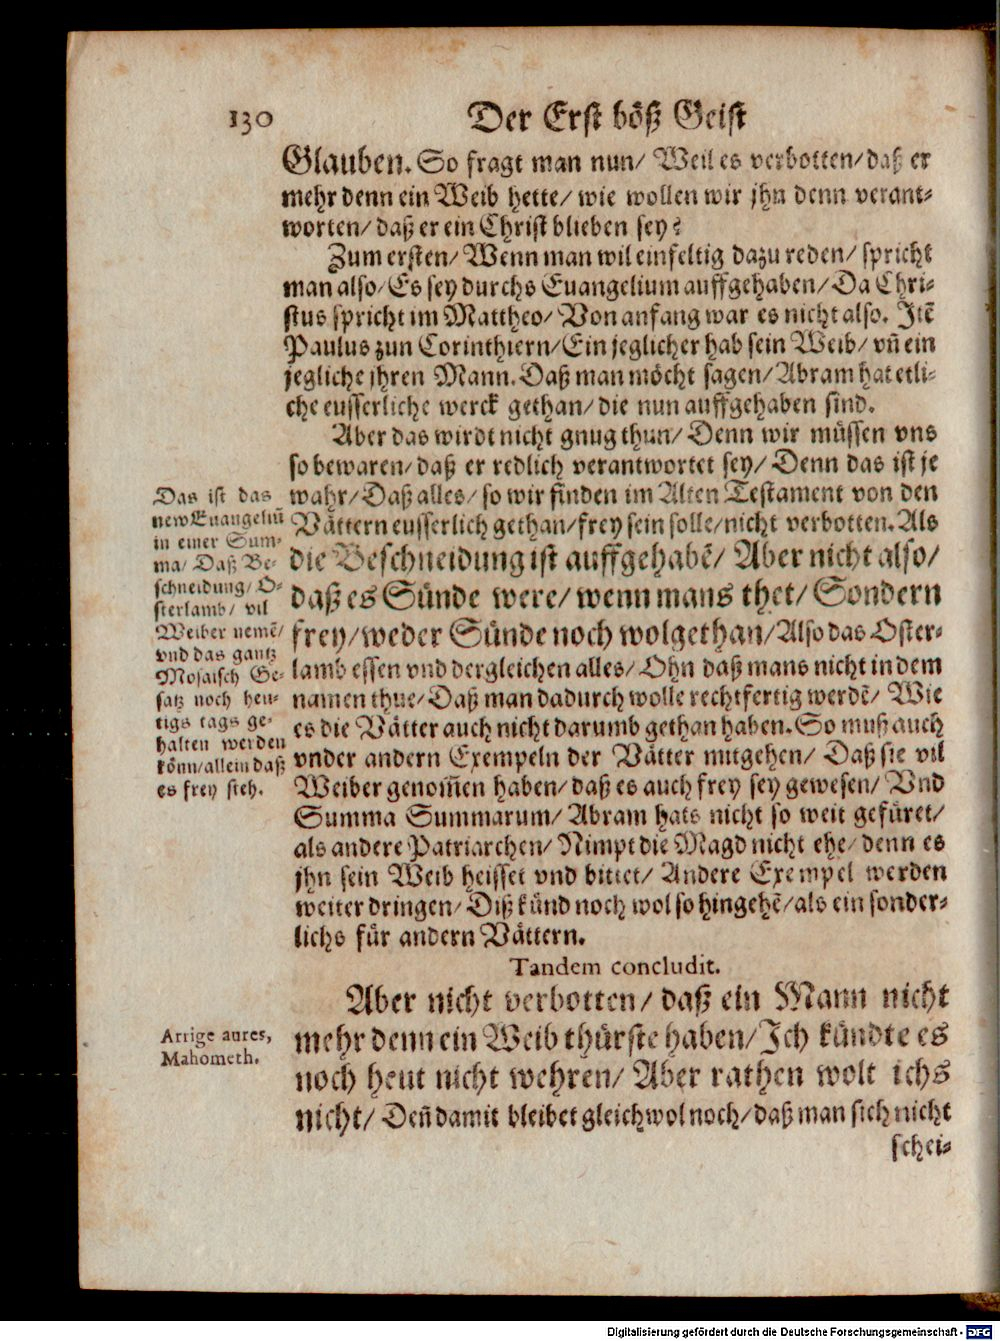 130
Der Erst böß Geist
Glauben. So fragt man nun/ Weil es verbotten/ daß er
mehr denn ein Weib hette/ wie wollen wir jhn denn verant-
worten/ daß er ein Christ blieben sey?
Zum ersten/ Wenn man wil einfeltig dazu reden/ spricht
man also/ Es sey durchs Euangelium auffgehaben/ Da Chri-
stus spricht im Mattheo/ Von anfang war es nicht also. Itē
Paulus zun Corinthiern/ Ein jeglicher hab sein Weib/ vn̄ ein
jegliche jhren Mann. Daß man möcht sagen/ Abram hat etli-
che eusserliche werck gethan/ die nun auffgehaben sind.
Aber das wirdt nicht gnug thun/ Denn wir müssen vns
so bewaren/ daß er redlich verantwortet sey/ Denn das ist je
wahr/ Daß alles/ so wir finden im Alten Testament von den
Vättern eusserlich gethan/ frey sein solle/ nicht verbotten. Als
die Beschneidung ist auffgehabē/ Aber nicht also/
daß es Sünde were/ wenn mans thet/ Sondern
frey/ weder Sünde noch wolgethan/ Also das Oster-
lamb essen vnd dergleichen alles/ Ohn daß mans nicht in dem
namen thue/ Daß man dadurch wolle rechtfertig werdē/ Wie
es die Vätter auch nicht darumb gethan haben. So muß auch
vnder andern Exempeln der Vätter mitgehen/ Daß sie vil
Weiber genom̄en haben/ daß es auch frey sey gewesen/ Vnd
Summa Summarum/ Abram hats nicht so weit gefüret/
als andere Patriarchen/ Nimpt die Magd nicht ehe/ denn es
jhn sein Weib heisset vnd bittet/ Andere Exempel werden
weiter dringen/ Diß künd noch wol so hingehē/ als ein sonder-
lichs für andern Vättern.
Tandem concludit.
Aber nicht verbotten/ daß ein Mann nicht
mehr denn ein Weib thürste haben/ Ich kündte es
noch heut nicht wehren/ Aber rathen wolt ichs
nicht/ Den̄ damit bleibet gleichwol noch/ daß man sich nicht
schei-
Das ist das
new Euangeliū
in einer Sum-
ma/ Daß Be-
schneidung/ O-
sterlamb/ vil
Weiber nemē/
vnd das gantz
Mosaisch Ge-
satz noch heu-
tigs tags ge-
halten werden
könn/ allein daß
es frey steh.
Arrige aures,
Mahometh.
Digitalisierung gefördert durch die Deutsche Forschungsgemeinschaft - DFG